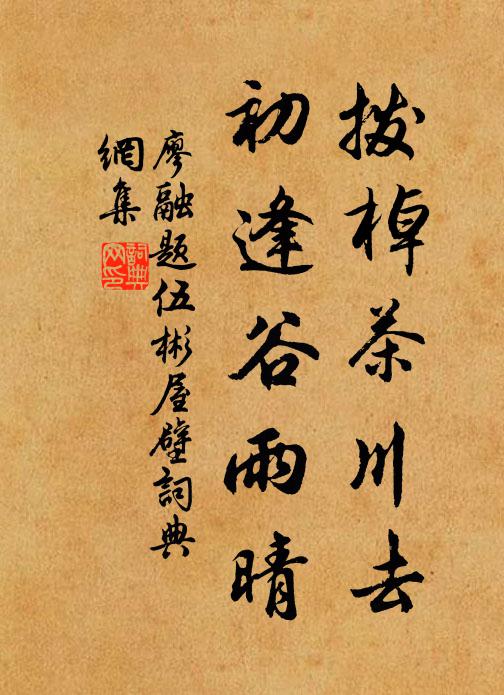 拨棹茶川去
初逢谷雨晴
廖融题伍彬屋壁詞典
網集
詞典網印